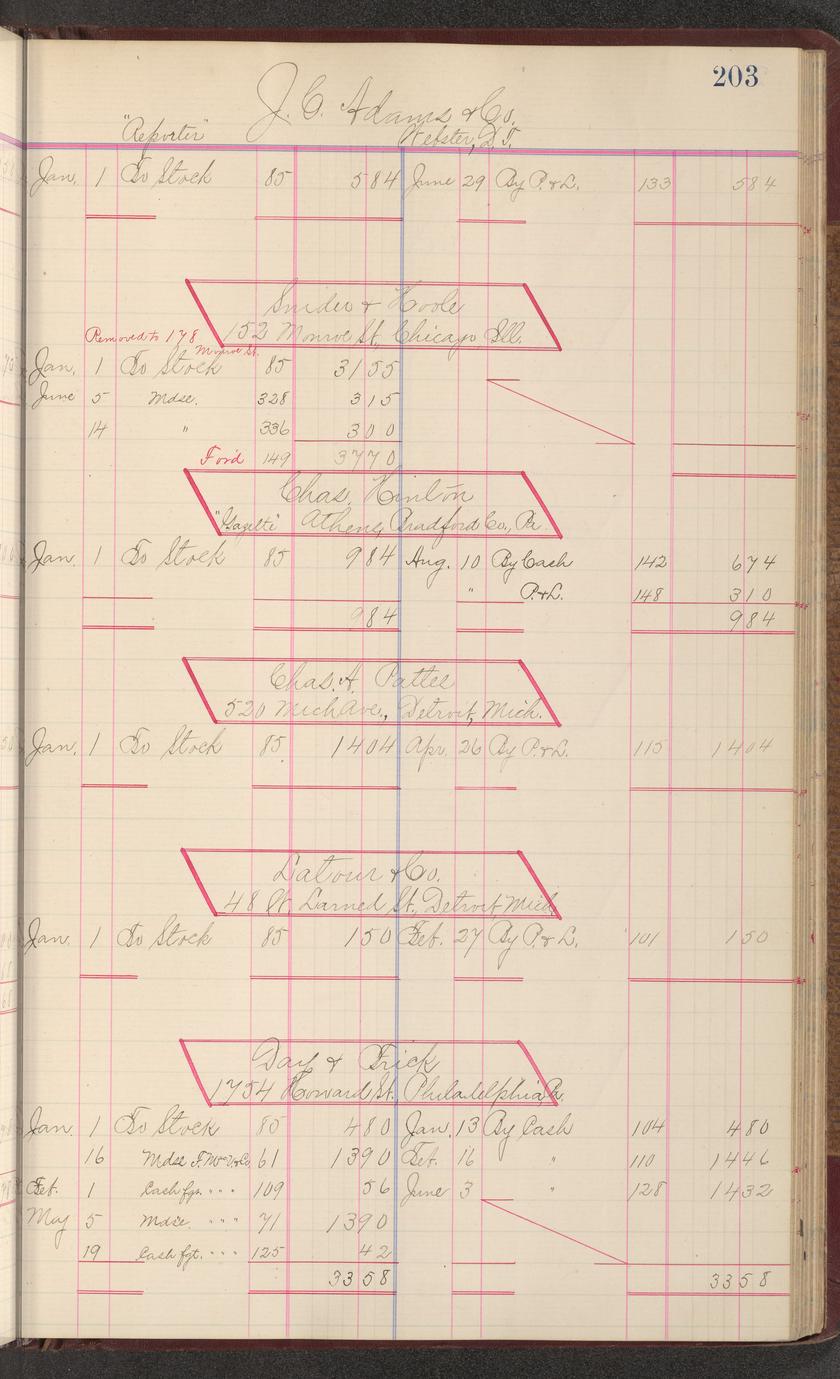 203
J. C. Adams & Co.
"Reporter" Webster, D. T.
Jan. 1 To Stock 85 584 June 29 By P. & L. 133 584
Snider & Hoole
152 Monroe St., Chicago, Ill.
Removed to 178
Monroe St.
Jan. 1 To Stock 85 3155
June 5 Mdse. 328 315
14 " 336 300
For'd 149 3770
Chas. Hinton
"Gazette" Athens, Bradford Co., Pa.
Jan. 1 To Stock 85 984 Aug. 10 By Cash 142 674
" P. & L. 148 310
984 984
Chas. A. Pattee
520 Mich Ave., Detroit, Mich.
Jan. 1 To Stock 85 1404 Apr. 26 By P. & L. 115 1404
Latour & Co.
48 Larned St., Detroit, Mich.
Jan. 1 To Stock 85 150 Feb. 27 By P. & L. 101 150
Day & Frick
1754 Howard St. Philadelphia, Pa.
Jan. 1 To Stock 85 480 Jan. 13 By Cash 104 480
16 Mdse 61 1390 Feb. 16 " 110 1446
Feb. 1 Cash fgt. " " " 109 56 June 3 " 128 1432
May 5 Mdse. " " " 71 1390
19 Cash fgt. " " " 125 42
3358 3358